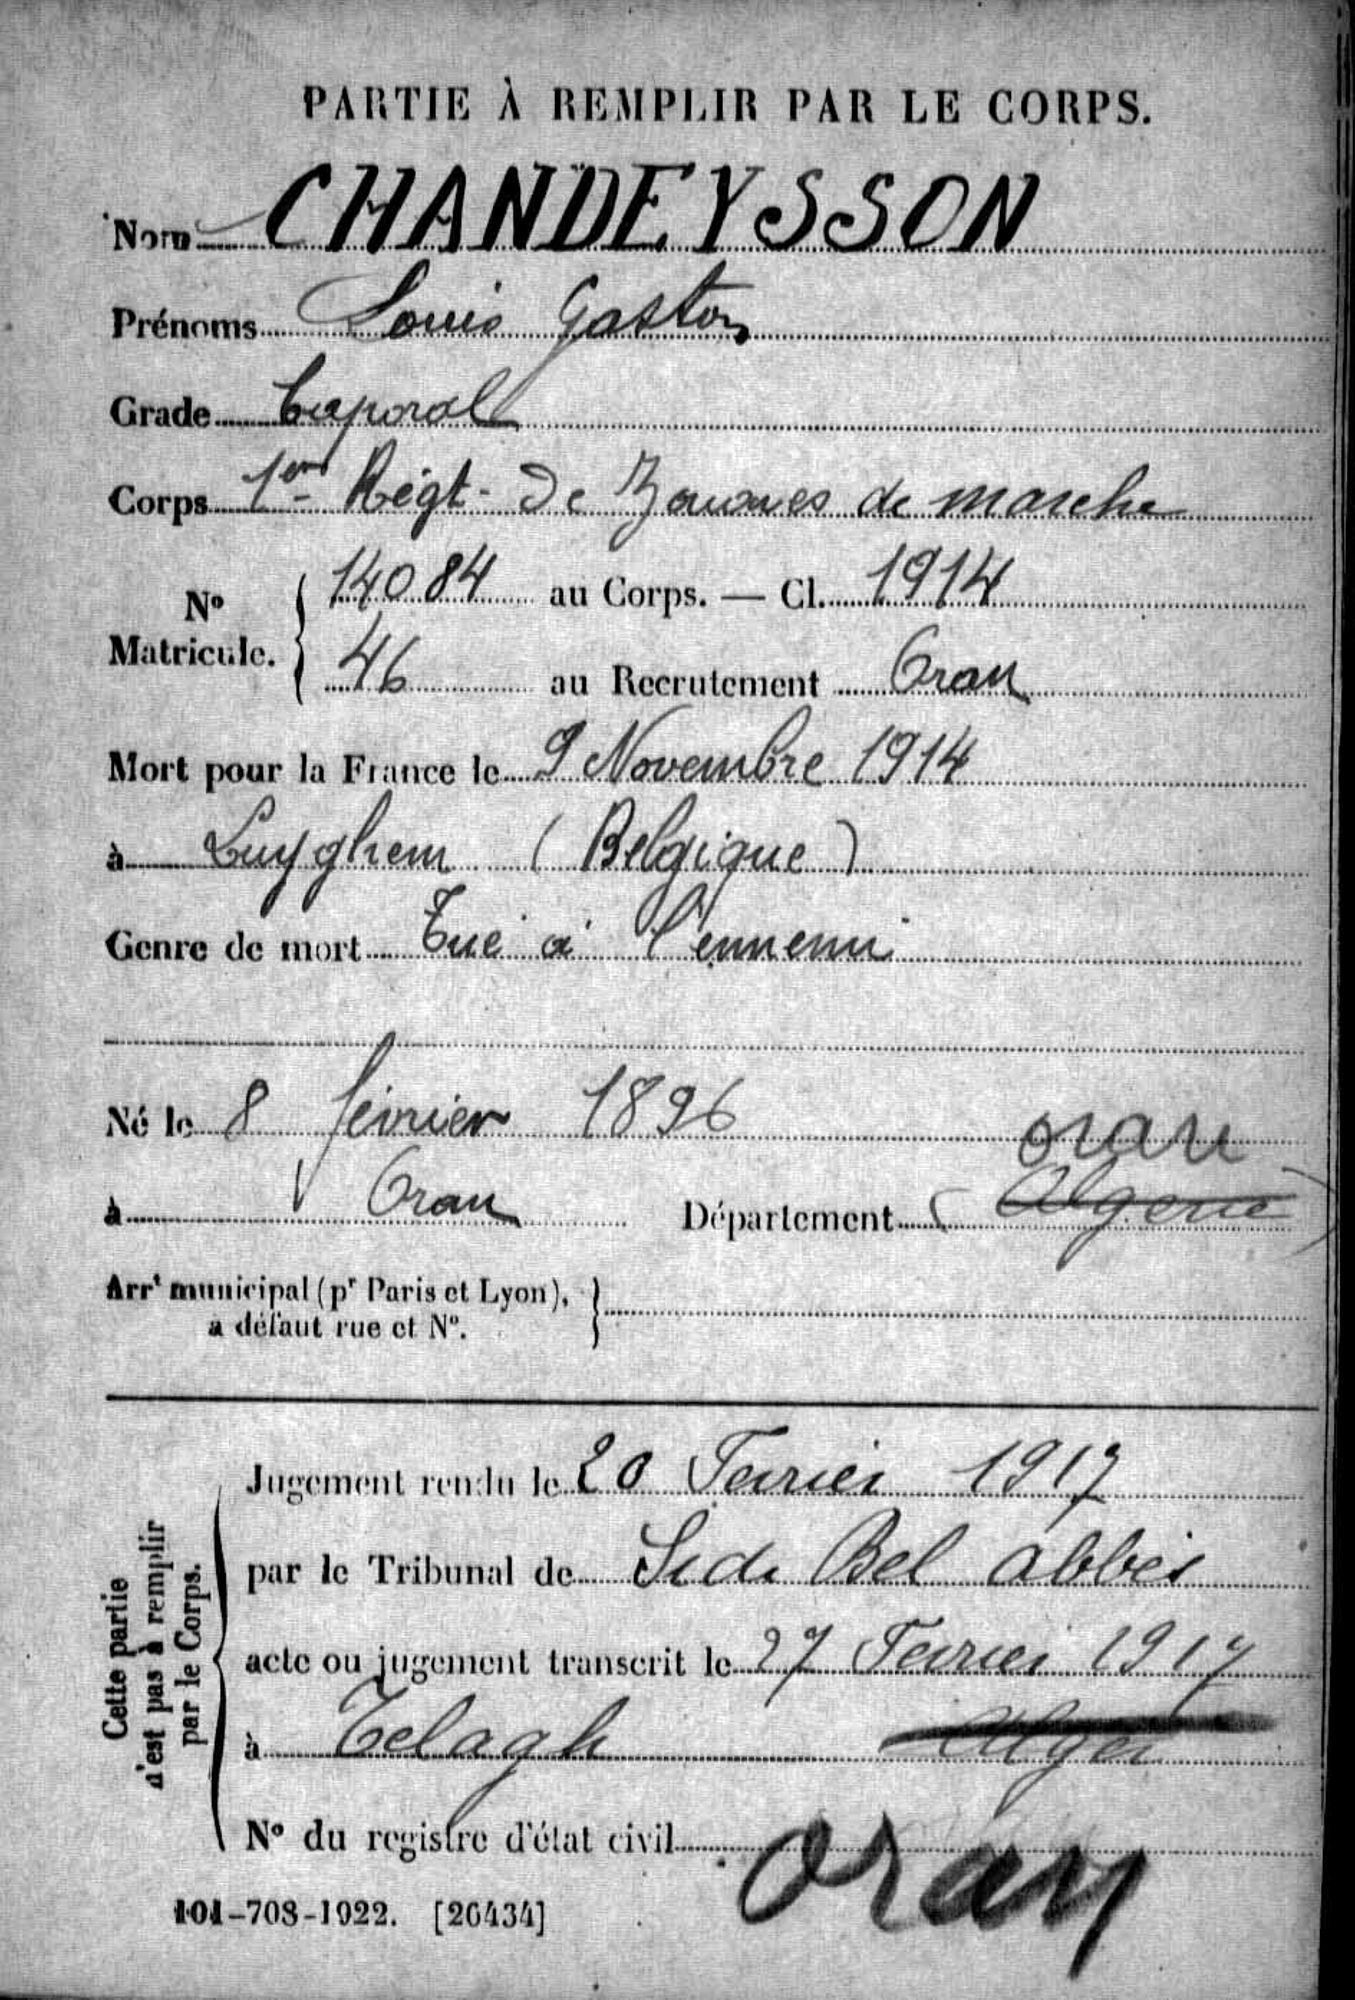 PARTIE À REMPLIR PAR LE CORPS.
Nom CHANDEYSSON
Prénoms Louis Gaston
Grade Caporal
Corps 1er Régt. de Zouaves de marche
N° Matricule. { 14084 au Corps. — Cl. 1914
46 au Recrutement Oran
Mort pour la France le 9 Novembre 1914
à Luyghem (Belgique)
Genre de mort Tué à l'ennemi
Né le 8 février 1896
oran
à Oran Département (Algérie)
Arrt municipal (pr Paris et Lyon), }
à défaut rue et N°.
Cette partie
n'est pas à remplir
par le Corps.
Jugement rendu le 20 Fevrier 1917
par le Tribunal de Sidi Bel abbès
acte ou jugement transcrit le 27 Fevrier 1917
à Telagh Alger
N° du registre d'état civil
oran
101-708-1922. [26434]